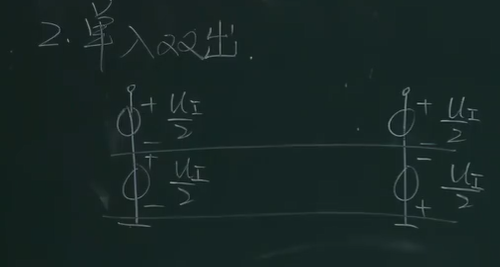 2. 单入双出.
+ uI/2 + uI/2
- -
+ uI/2 - uI/2
- +